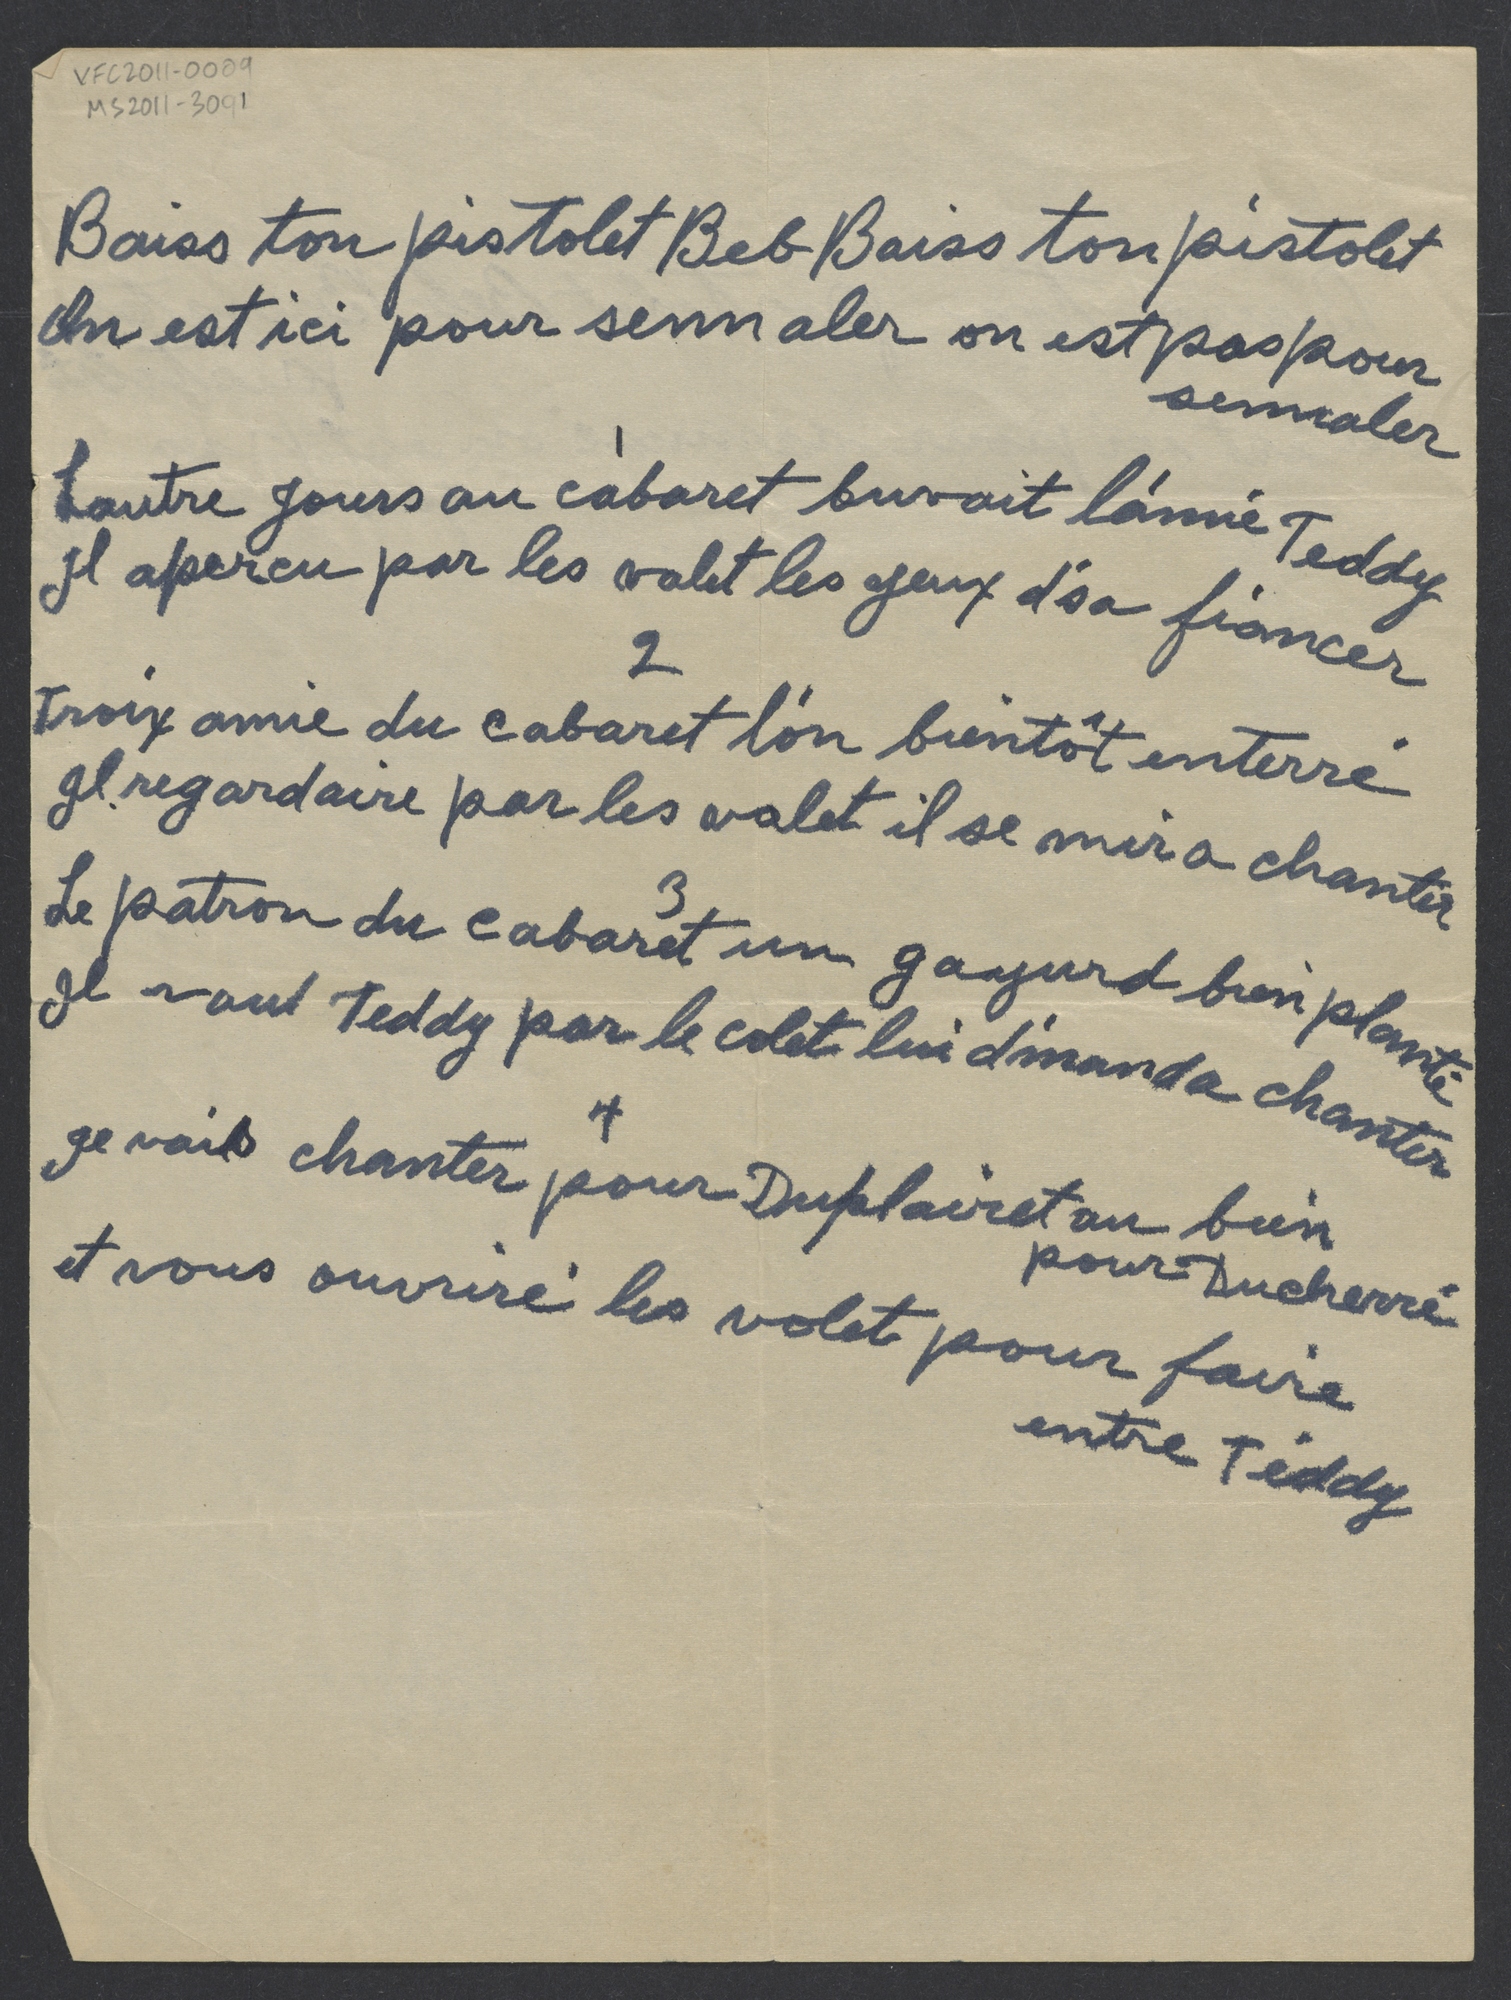 VFC2011-0009
MS2011-3091
Baiss ton pistolet Beb Baiss ton pistolet
On est ici pour senn aler on est pas pour
sennaler
1
Lautre Jours au cabaret buvait l'amié Teddy
Il apercu par les valet les yeux d'sa fiancer
2
Troix amie du cabaret l'on bientôt enterré
Il regardaire par les valet il se mir a chanter
3
Le patron du cabaret un gayurd bien planté
Il Teddy par le colet lui d'manda chanter
4
Je vais chanter pour Duplairet au bien
pour Ducherré
et vous ouvriré les volet pour faire
entre Téddy